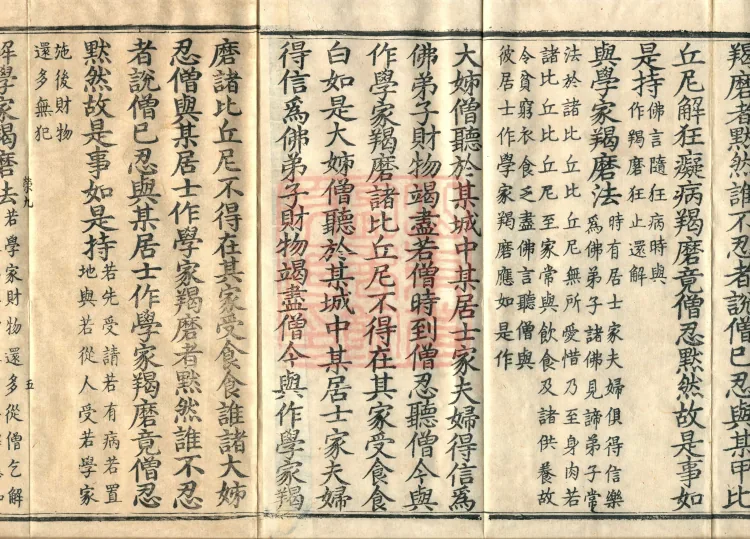 羯磨者默然誰不忍者說僧已忍與某甲比
丘尼解狂癡病羯磨竟僧忍默然故是事如
是持
佛言隨狂病時與
作羯磨狂止還解
與學家羯磨法
時有居士家夫婦俱得信樂
爲佛弟子諸佛見諦弟子常
法於諸比丘比丘尼無所愛惜乃至身肉若
諸比丘比丘尼至家常與飲食及諸供養故
令貧窮衣食乏盡佛言聽僧與
彼居士作學家羯磨應如是作
大姊僧聽於某城中某居士家夫婦得信爲
佛弟子財物竭盡若僧時到僧忍聽僧今與
作學家羯磨諸比丘尼不得在其家受食食
白如是大姊僧聽於某城中某居士家夫婦
得信爲佛弟子財物竭盡僧今與作學家羯
磨諸比丘尼不得在其家受食食誰諸大姊
忍僧與某居士作學家羯磨者默然誰不忍
者說僧已忍與某居士作學家羯磨竟僧忍
默然故是事如是持
若先受請若有病若置
地與若從人受若學家
施後財物
還多無犯
榮九 五
解學家羯磨法
若學家財物還多從僧乞解